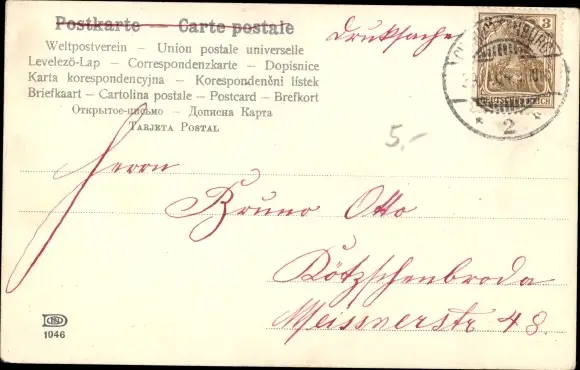 Postkarte — Carte postale
Drucksache
Weltpostverein — Union postale universelle
Levelező-Lap — Correspondenzkarte — Dopisnice
Karta korespondencyjna — Korespondenční lístek
Briefkaart — Cartolina postale — Postcard — Brefkort
Открытое письмо — Дописна Карта
Tarjeta Postal
3
2
5.-
Herrn
Bruno Otto
Kötzschenbroda
Meissnerstr 48.
1046